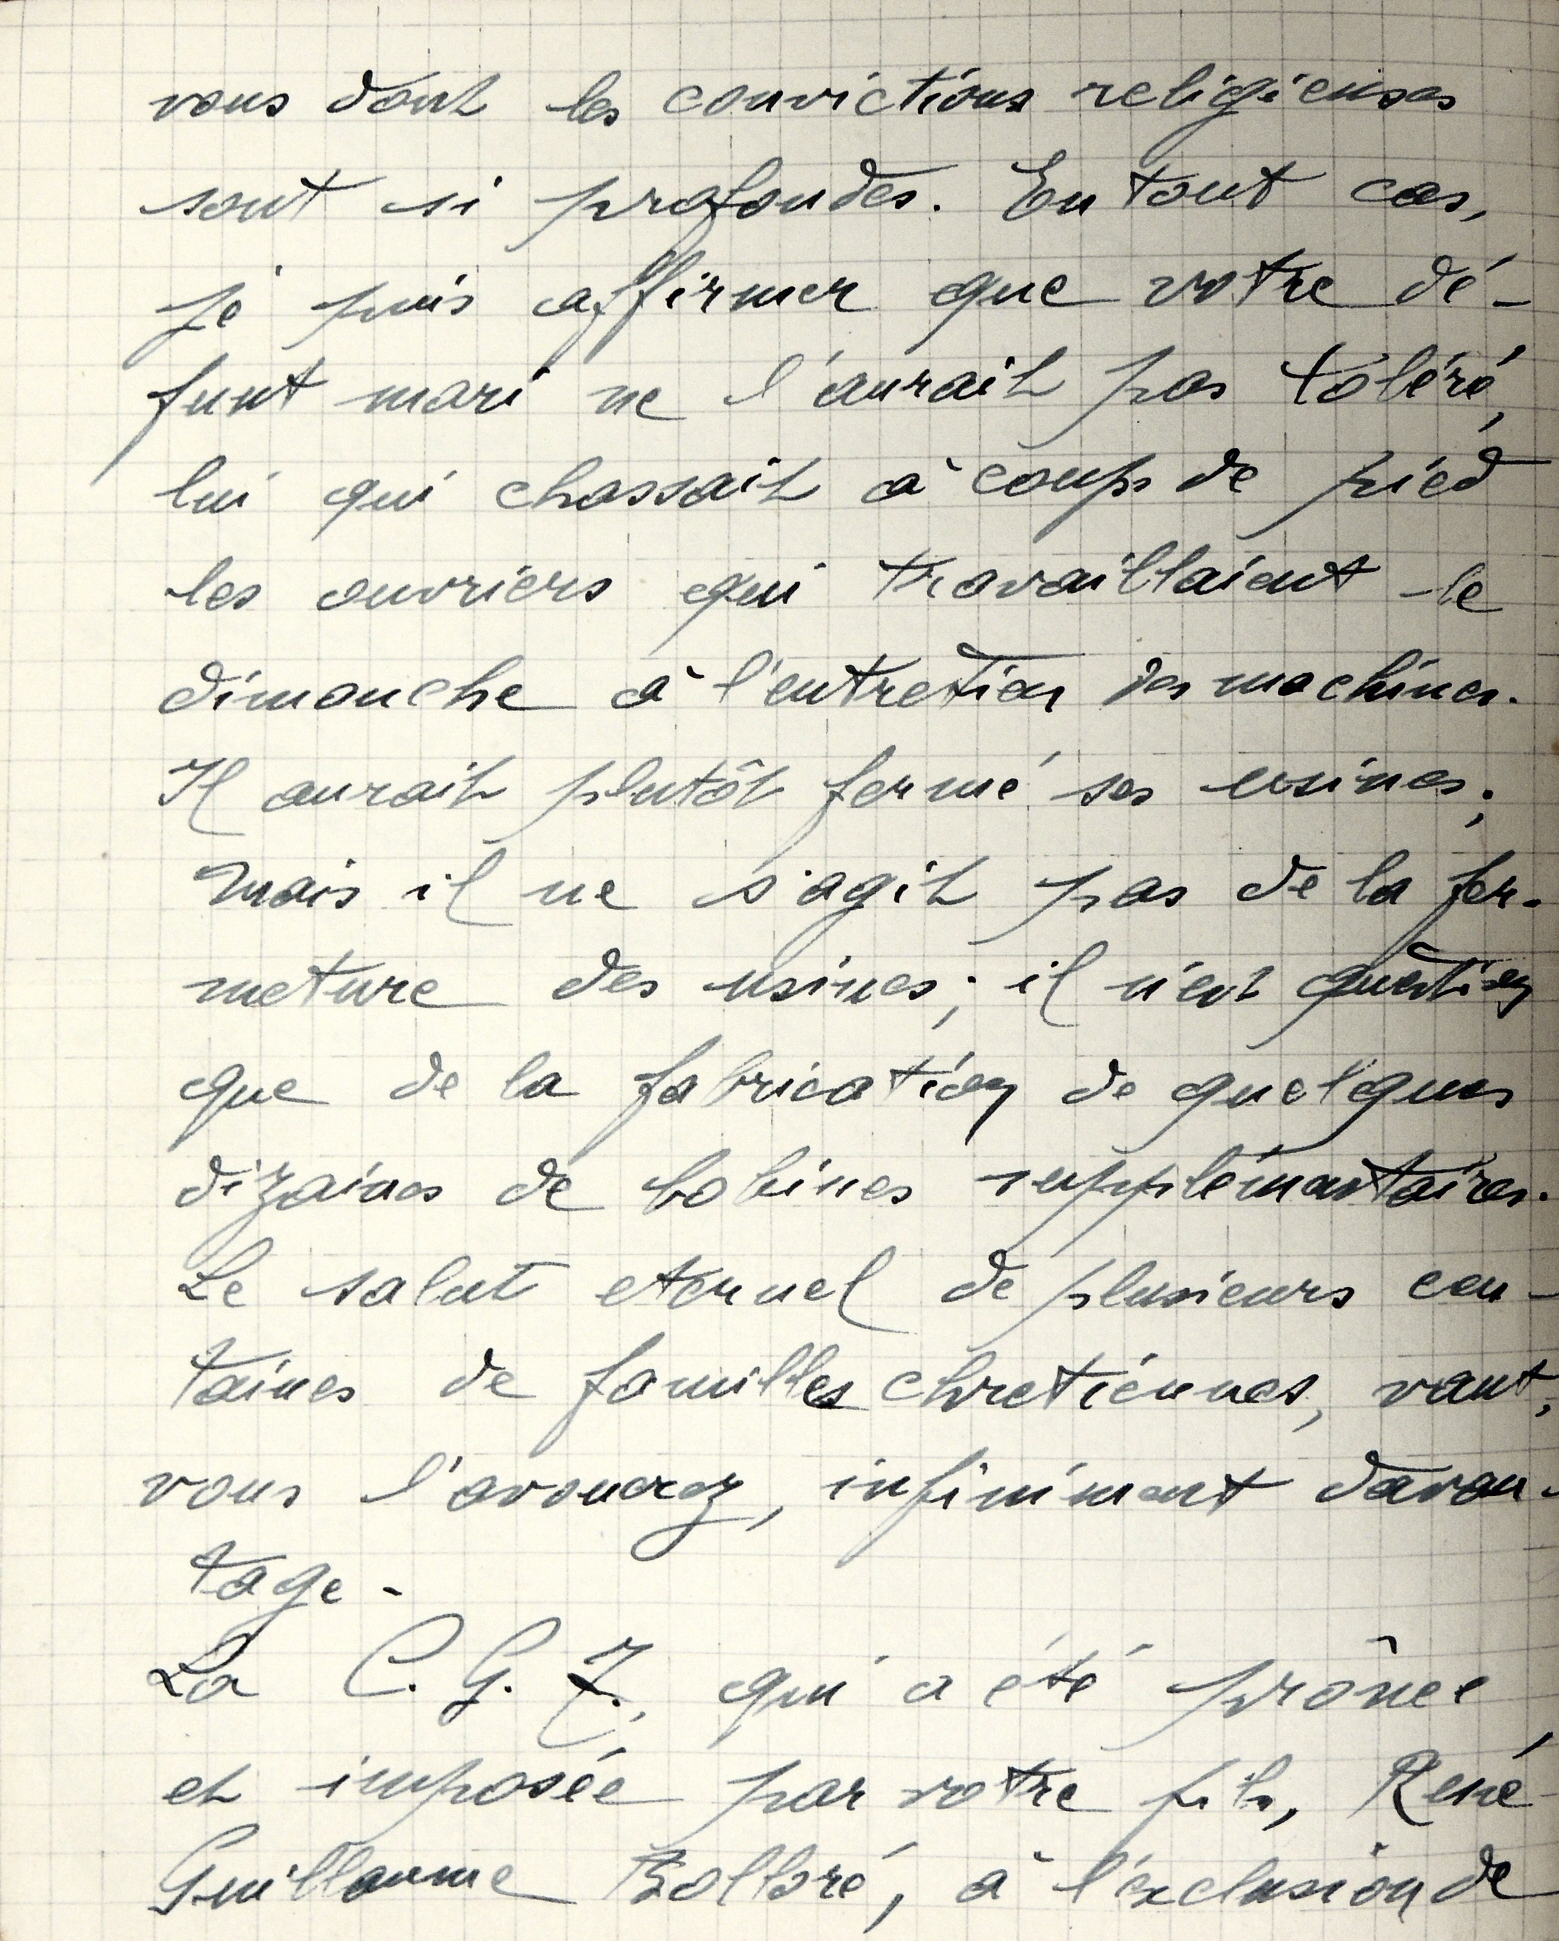 vous dont les convictions religieuses
sont si profondes. En tout cas,
je puis affirmer que votre dé-
funt mari ne l'aurait pas toléré,
lui qui chassait à coups de pied
les ouvriers qui travaillaient le
dimanche à l'entretien des machines.
Il aurait plutôt fermé ses usines;
Mais il ne s'agit pas de la fer-
meture des usines; il n'est question
que de la fabrication de quelques
dizaines de bobines supplémentaires.
Le salut eternel de plusieurs cen-
taines de familles chretiennes, vaut,
vous l'avouerez, infiniment davan-
tage -
La C.G.T., qui a été prônée,
et imposée par votre fils, René
Guillaume Bolloré, à l'exclusion de